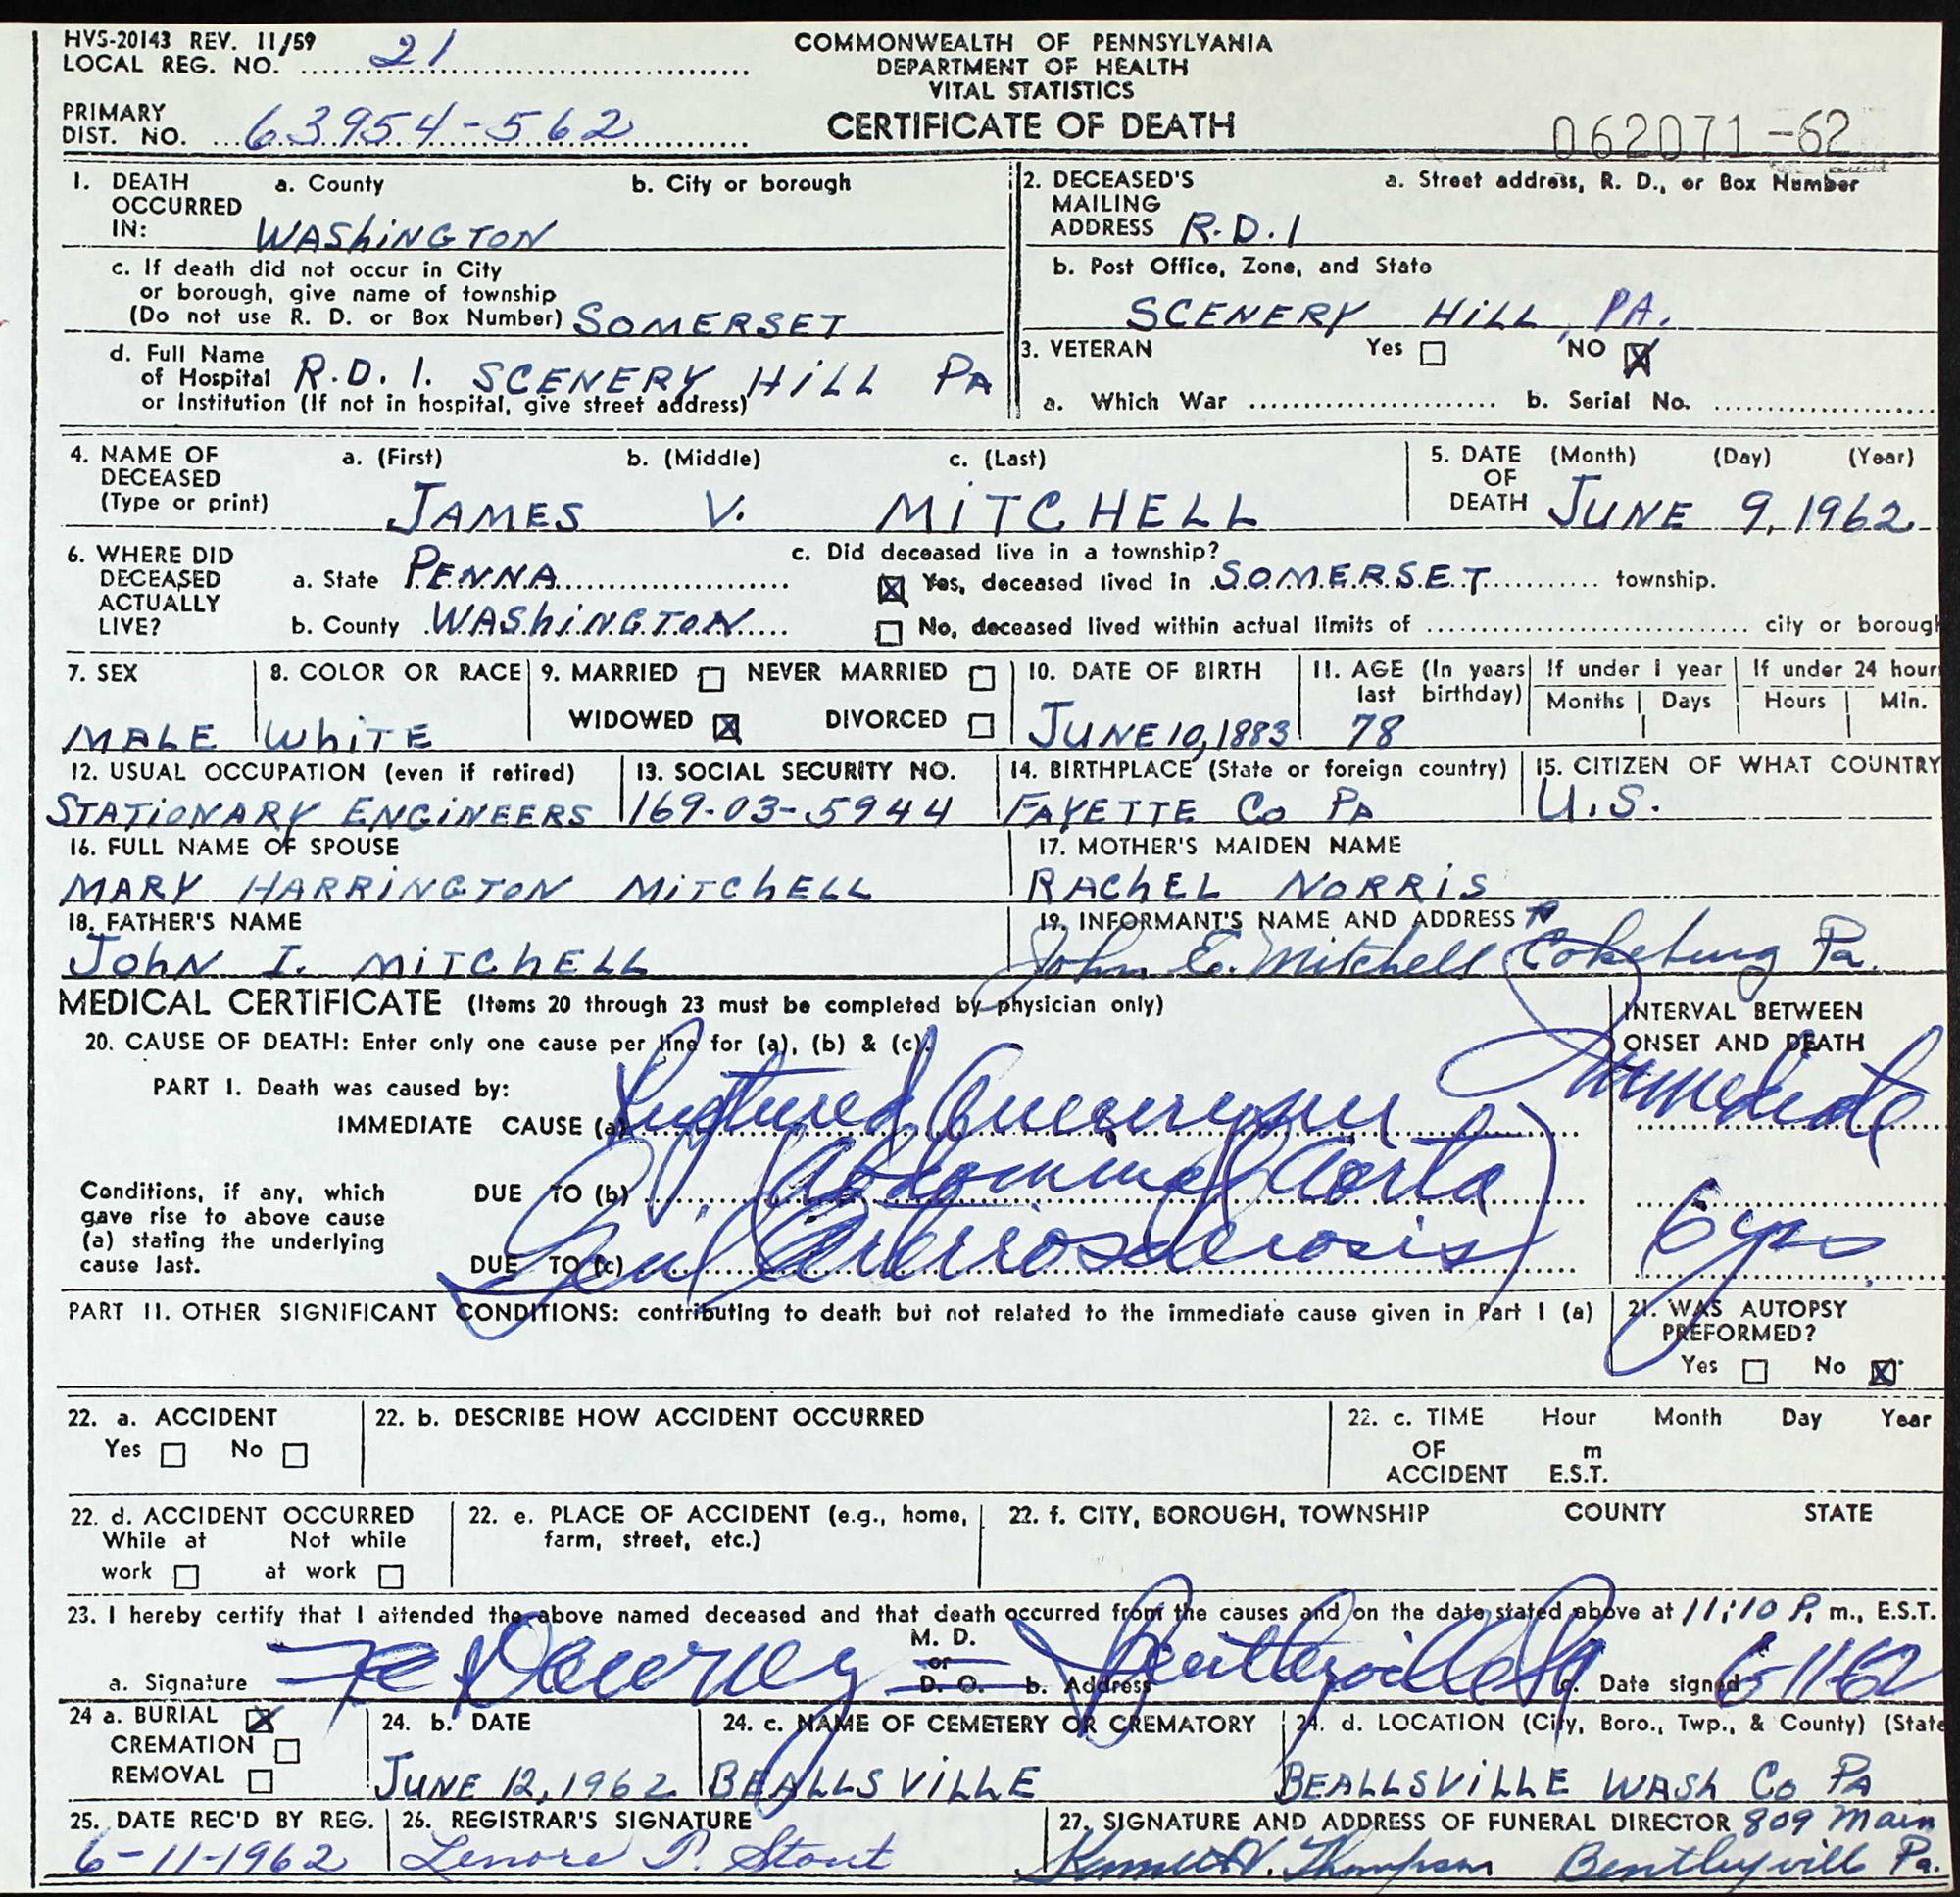 HVS-20143 REV. 11/59
LOCAL REG. NO. 21
COMMONWEALTH OF PENNSYLVANIA
DEPARTMENT OF HEALTH
VITAL STATISTICS
CERTIFICATE OF DEATH
PRIMARY
DIST. NO. 63954-562
062071-62
1. DEATH OCCURRED IN: a. County b. City or borough
WAShiNGTON
c. If death did not occur in City
or borough, give name of township
(Do not use R. D. or Box Number) SOMERSET
d. Full Name
of Hospital R.D. 1. SCENERY HiLL PA
or Institution (If not in hospital, give street address)
2. DECEASED'S MAILING ADDRESS a. Street address, R. D., or Box Number
R.D.1
b. Post Office, Zone, and State
SCENERY HiLL, PA.
3. VETERAN Yes NO
a. Which War b. Serial No.
4. NAME OF DECEASED (Type or print) a. (First) b. (Middle) c. (Last)
JAMES V. MiTCHELL
5. DATE OF DEATH (Month) (Day) (Year)
JUNE 9, 1962
6. WHERE DID DECEASED ACTUALLY LIVE?
a. State PENNA
b. County WAShiNGTON
c. Did deceased live in a township?
Yes, deceased lived in SOMERSET township.
No, deceased lived within actual limits of city or boroug
7. SEX
MALE
8. COLOR OR RACE
WhiTE
9. MARRIED NEVER MARRIED
WIDOWED DIVORCED
10. DATE OF BIRTH
JUNE 10, 1883
11. AGE (In years last birthday)
78
If under 1 year
Months Days
If under 24 hour
Hours Min.
12. USUAL OCCUPATION (even if retired)
STATiONARY ENGiNEERS
13. SOCIAL SECURITY NO.
169-03-5944
14. BIRTHPLACE (State or foreign country)
FAYETTE Co PA
15. CITIZEN OF WHAT COUNTRY
U.S.
16. FULL NAME OF SPOUSE
MARY HARRiNGTON MiTChELL
17. MOTHER'S MAIDEN NAME
RAChEL NORRiS
18. FATHER'S NAME
JOhN I. MiTChELL
19. INFORMANT'S NAME AND ADDRESS
John E. Mitchell Cokeburg Pa.
MEDICAL CERTIFICATE (Items 20 through 23 must be completed by physician only)
INTERVAL BETWEEN
ONSET AND DEATH
20. CAUSE OF DEATH: Enter only one cause per line for (a), (b) & (c).
PART I. Death was caused by:
IMMEDIATE CAUSE (a) Ruptured Aneurysm Immediate
Conditions, if any, which
gave rise to above cause
(a) stating the underlying
cause last.
DUE TO (b) Abdominal Aorta
DUE TO (c) Genl Arteriosclerosis 6 yrs
PART II. OTHER SIGNIFICANT CONDITIONS: contributing to death but not related to the immediate cause given in Part I (a)
21. WAS AUTOPSY
PREFORMED?
Yes No
22. a. ACCIDENT
Yes No
22. b. DESCRIBE HOW ACCIDENT OCCURRED
22. c. TIME OF ACCIDENT Hour Month Day Year
m
E.S.T.
22. d. ACCIDENT OCCURRED
While at work Not while at work
22. e. PLACE OF ACCIDENT (e.g., home,
farm, street, etc.)
22. f. CITY, BOROUGH, TOWNSHIP COUNTY STATE
23. I hereby certify that I attended the above named deceased and that death occurred from the causes and on the date stated above at 11:10 P. m., E.S.T.
M. D.
or
D. O.
a. Signature b. Address Bentleyville Pa c. Date signed 6-11-62
24 a. BURIAL
CREMATION
REMOVAL
24. b. DATE
JUNE 12, 1962
24. c. NAME OF CEMETERY OR CREMATORY
BEALLSViLLE
24. d. LOCATION (City, Boro., Twp., & County) (State
BEALLSViLLE WASh Co PA
25. DATE REC'D BY REG.
6-11-1962
26. REGISTRAR'S SIGNATURE
Lenore P. Stout
27. SIGNATURE AND ADDRESS OF FUNERAL DIRECTOR 809 Main
Thompson Bentleyville Pa.